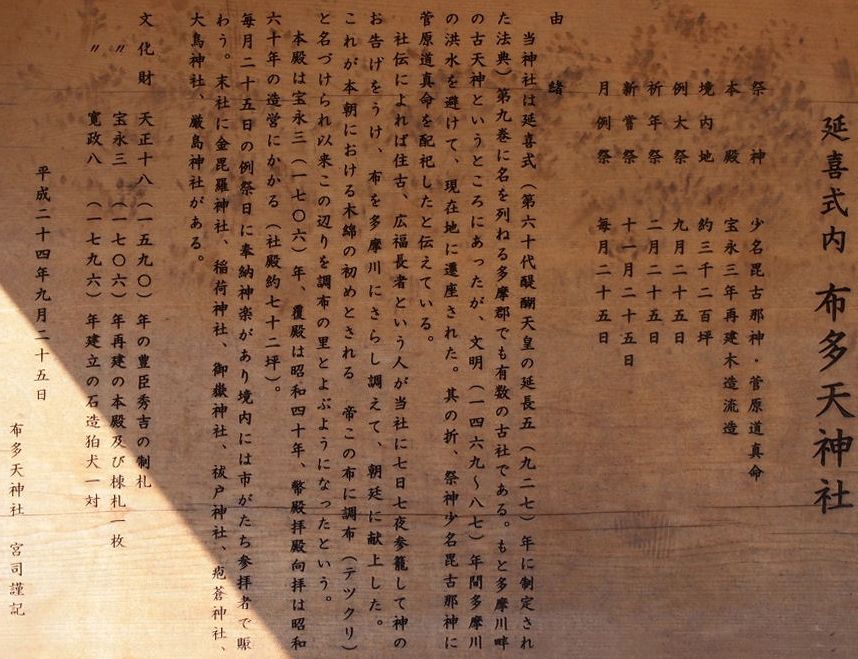 延喜式内 布多天神社
祭神 少名毘古那神・菅原道真命
本殿 宝永三年再建木造流造
境内地 約三千二百坪
例大祭 九月二十五日
祈年祭 二月二十五日
新嘗祭 十一月二十五日
月例祭 毎月二十五日
由緒
当神社は延喜式(第六十代醍醐天皇の延長五(九二七)年に制定され
た法典)第九巻に名を列ねる多摩郡でも有数の古社である。もと多摩川畔
の古天神というところにあったが、文明(一四六九~八七)年間多摩川
の洪水を避けて、現在地に遷座された。其の折、祭神少名毘古那神に
菅原道真命を配祀したと伝えている。
社伝によれば住古、広福長者という人が当社に七日七夜参籠して神の
お告げをうけ、布を多摩川にさらし調えて、朝廷に献上した。
これが本朝における木綿の初めとされる 帝この布に調布(テツクリ)
と名づけられ以来この辺りを調布の里とよぶようになったという。
本殿は宝永三(一七〇六)年、覆殿は昭和四十年、幣殿拝殿向拝は昭和
六十年の造営にかかる(社殿約七十二坪)。
毎月二十五日の例祭日に奉納神楽があり境内には市がたち参拝者で賑
わう。末社に金毘羅神社、稲荷神社、御嶽神社、祓戸神社、疱蒼神社、
大鳥神社、厳島神社がある。
文化財 天正十八(一五九〇)年の豊臣秀吉の制札
〃 宝永三(一七〇六)年再建の本殿及び棟札一枚
〃 寛政八(一七九六)年建立の石造狛犬一対
平成二十四年九月二十五日
布多天神社 宮司謹記